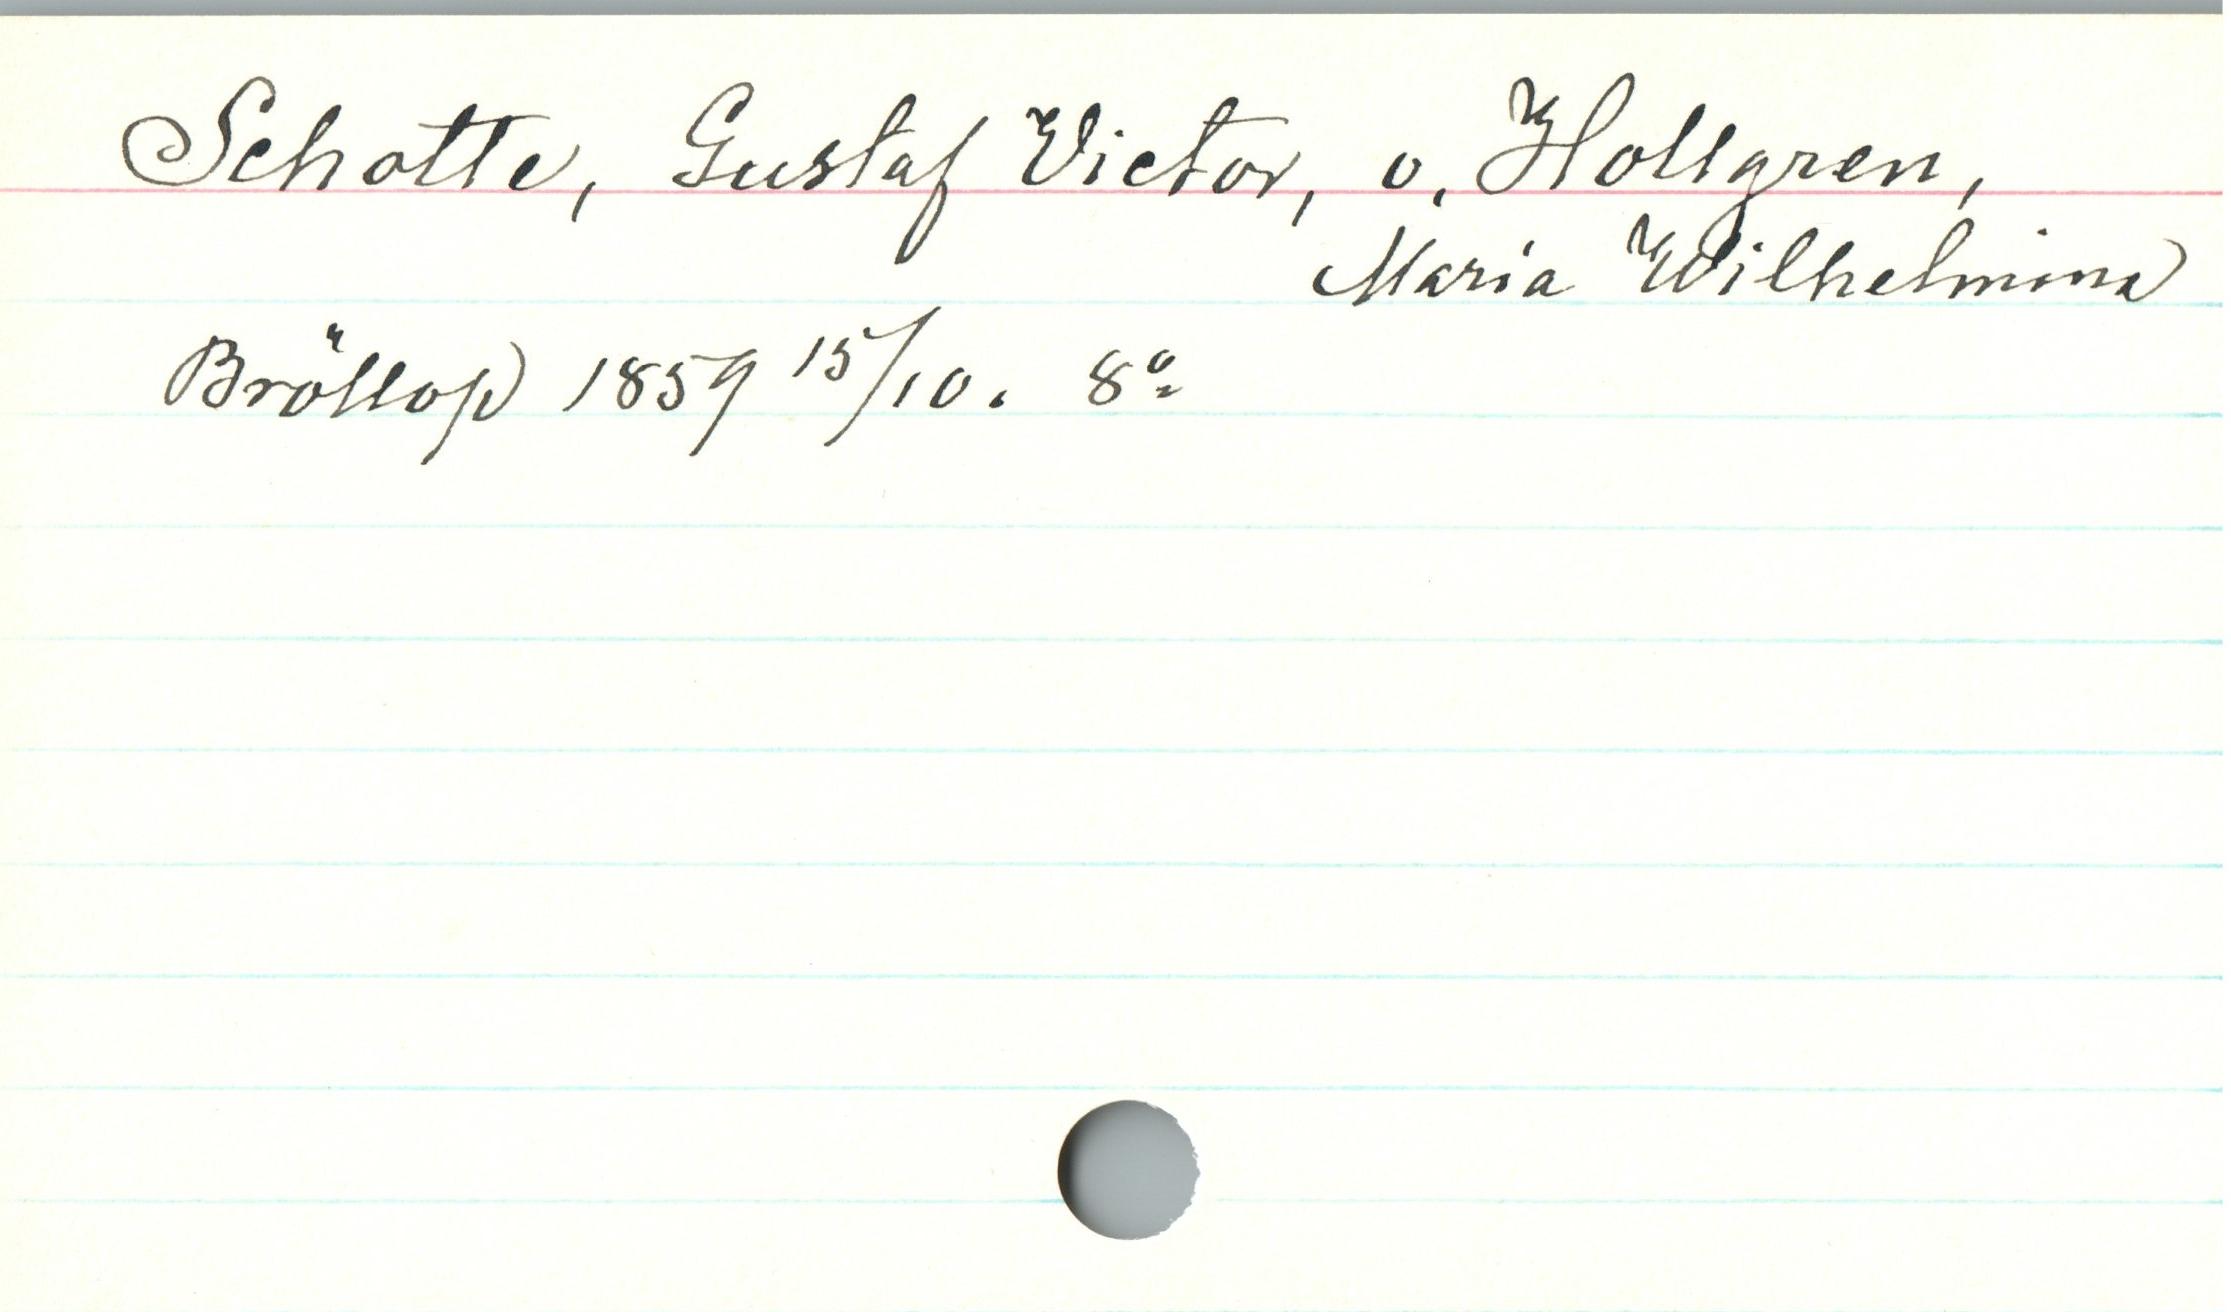 Schotte, Gustaf Victor, o. Hollgren,
Maria Wilhelmina
Bröllop 1859 15/10. 8o